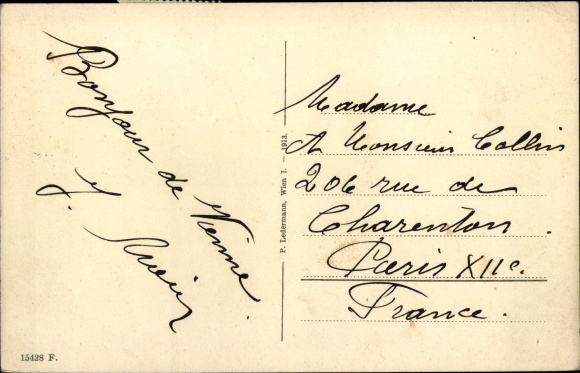 Bonjour de Vienne.
J.
Madame
et Monsieur Collin
206 rue de
Charenton.
Paris XIIe.
France.
P. Ledermann, Wien I. — 1913.
15428 F.